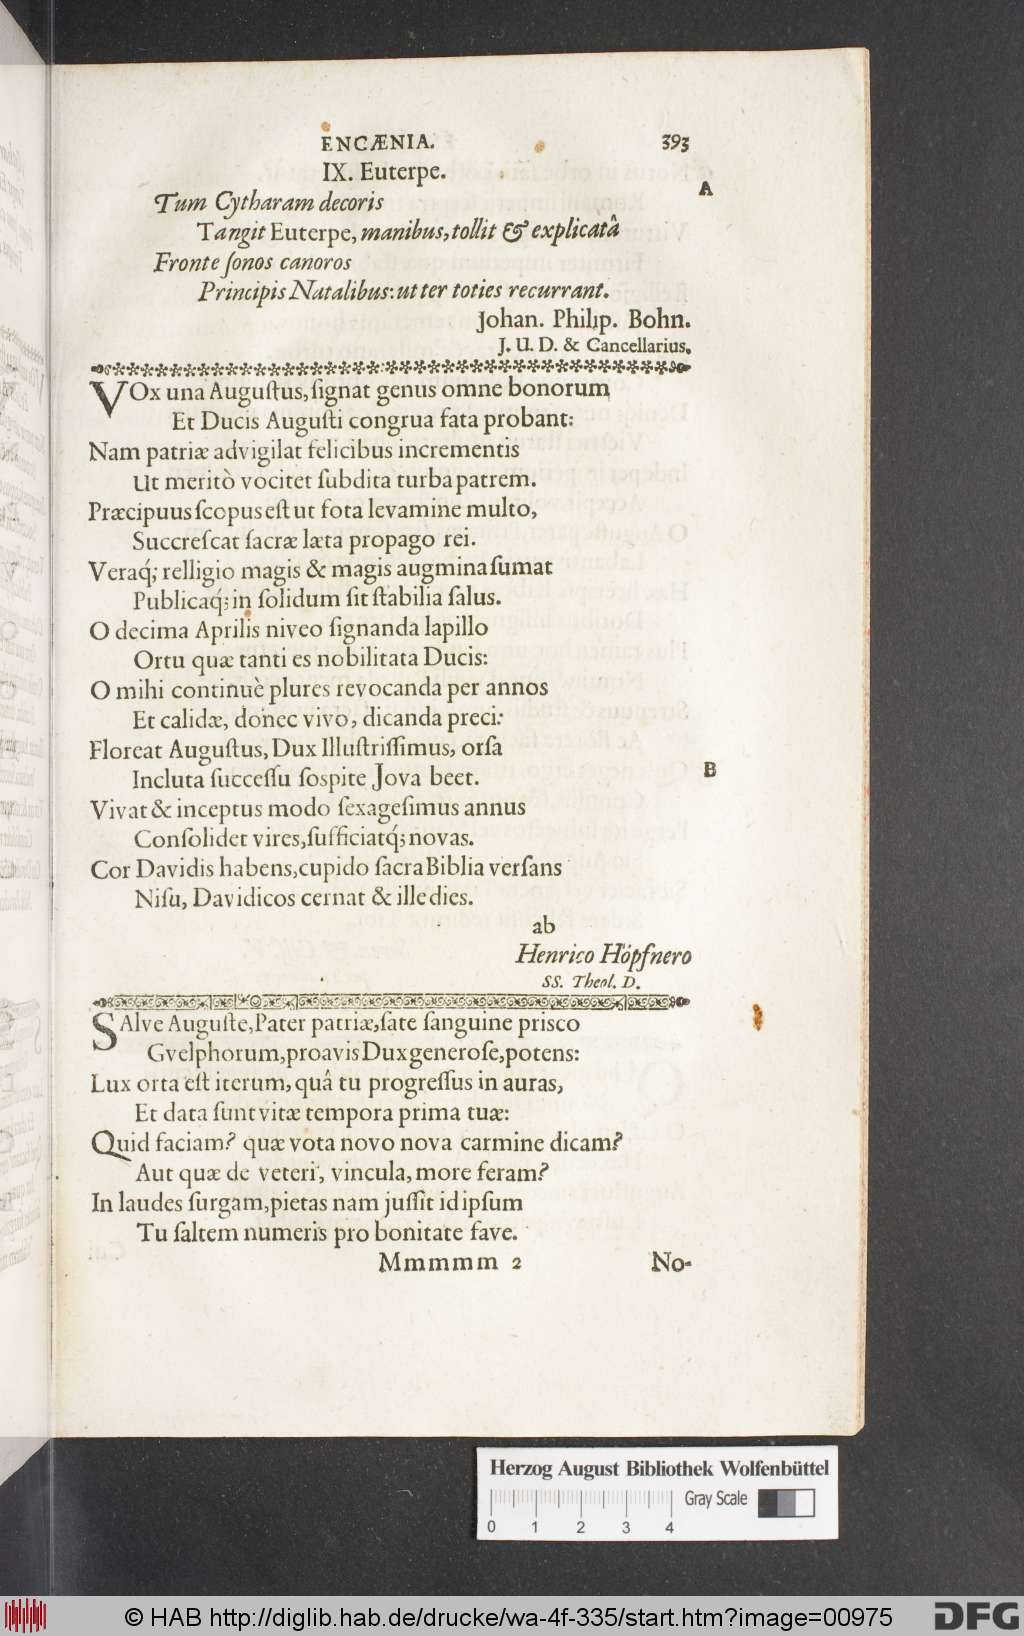 ENCÆNIA. 393
IX. Euterpe.
A
Tum Cytharam decoris
Tangit Euterpe, manibus, tollit & explicatâ
Fronte ſonos canoros
Principis Natalibus: ut ter toties recurrant.
Johan. Philip. Bohn.
J. U. D. & Cancellarius.
VOx una Auguſtus, ſignat genus omne bonorum
Et Ducis Auguſti congrua fata probant:
Nam patriæ advigilat felicibus incrementis
Ut meritò vocitet ſubdita turba patrem.
Præcipuus ſcopus eſt ut fota levamine multo,
Succreſcat ſacræ læta propago rei.
Veraq́; relligio magis & magis augmina ſumat
Publicaq́; in ſolidum ſit ſtabilia ſalus.
O decima Aprilis niveo ſignanda lapillo
Ortu quæ tanti es nobilitata Ducis:
O mihi continuè plures revocanda per annos
Et calidæ, donec vivo, dicanda preci:
Floreat Auguſtus, Dux Illuſtriſſimus, orſa
Incluta ſucceſſu ſospite Jova beet.
B
Vivat & inceptus modo ſexageſimus annus
Conſolidet vires, ſufficiatq́; novas.
Cor Davidis habens, cupido ſacra Biblia verſans
Niſu, Davidicos cernat & ille dies.
ab
Henrico Höpfnero
SS. Theol. D.
SAlve Auguſte, Pater patriæ, ſate ſanguine prisco
Gvelphorum, proavis Dux generoſe, potens:
Lux orta eſt iterum, quâ tu progreſſus in auras,
Et data ſunt vitæ tempora prima tuæ:
Quid faciam? quæ vota novo nova carmine dicam?
Aut quæ de veteri, vincula, more feram?
In laudes ſurgam, pietas nam juſſit id ipſum
Tu ſaltem numeris pro bonitate fave.
Mmmmm 2 No-
Herzog August Bibliothek Wolfenbüttel
Gray Scale
0 1 2 3 4
© HAB http://diglib.hab.de/drucke/wa-4f-335/start.htm?image=00975 DFG